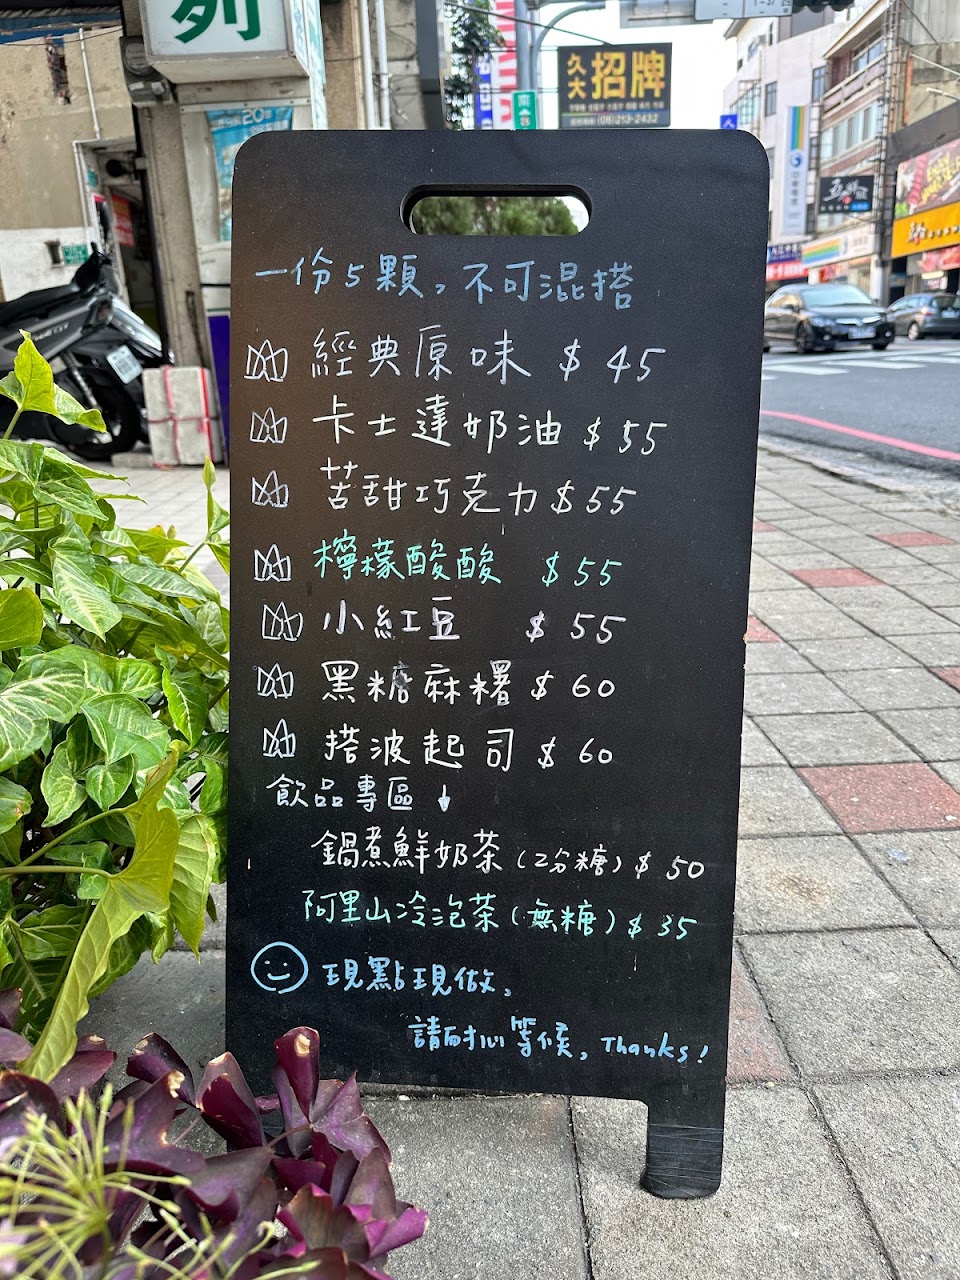 列
久大招牌
(06)213-2432
一份5顆，不可混搭
經典原味 $45
卡士達奶油 $55
苦甜巧克力 $55
檸檬酸酸 $55
小紅豆 $55
黑糖麻糬 $60
搭波起司 $60
飲品專區↓
鍋煮鮮奶茶(2分糖) $50
阿里山冷泡茶(無糖) $35
現點現做，
請耐心等候，Thanks!